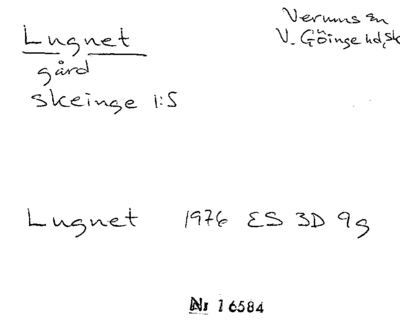 Lugnet
Verums sn
V. Göinge hd, sk
gård
skeinge 1:5
Lugnet 1976 ES 3D 9g
Nr 16584